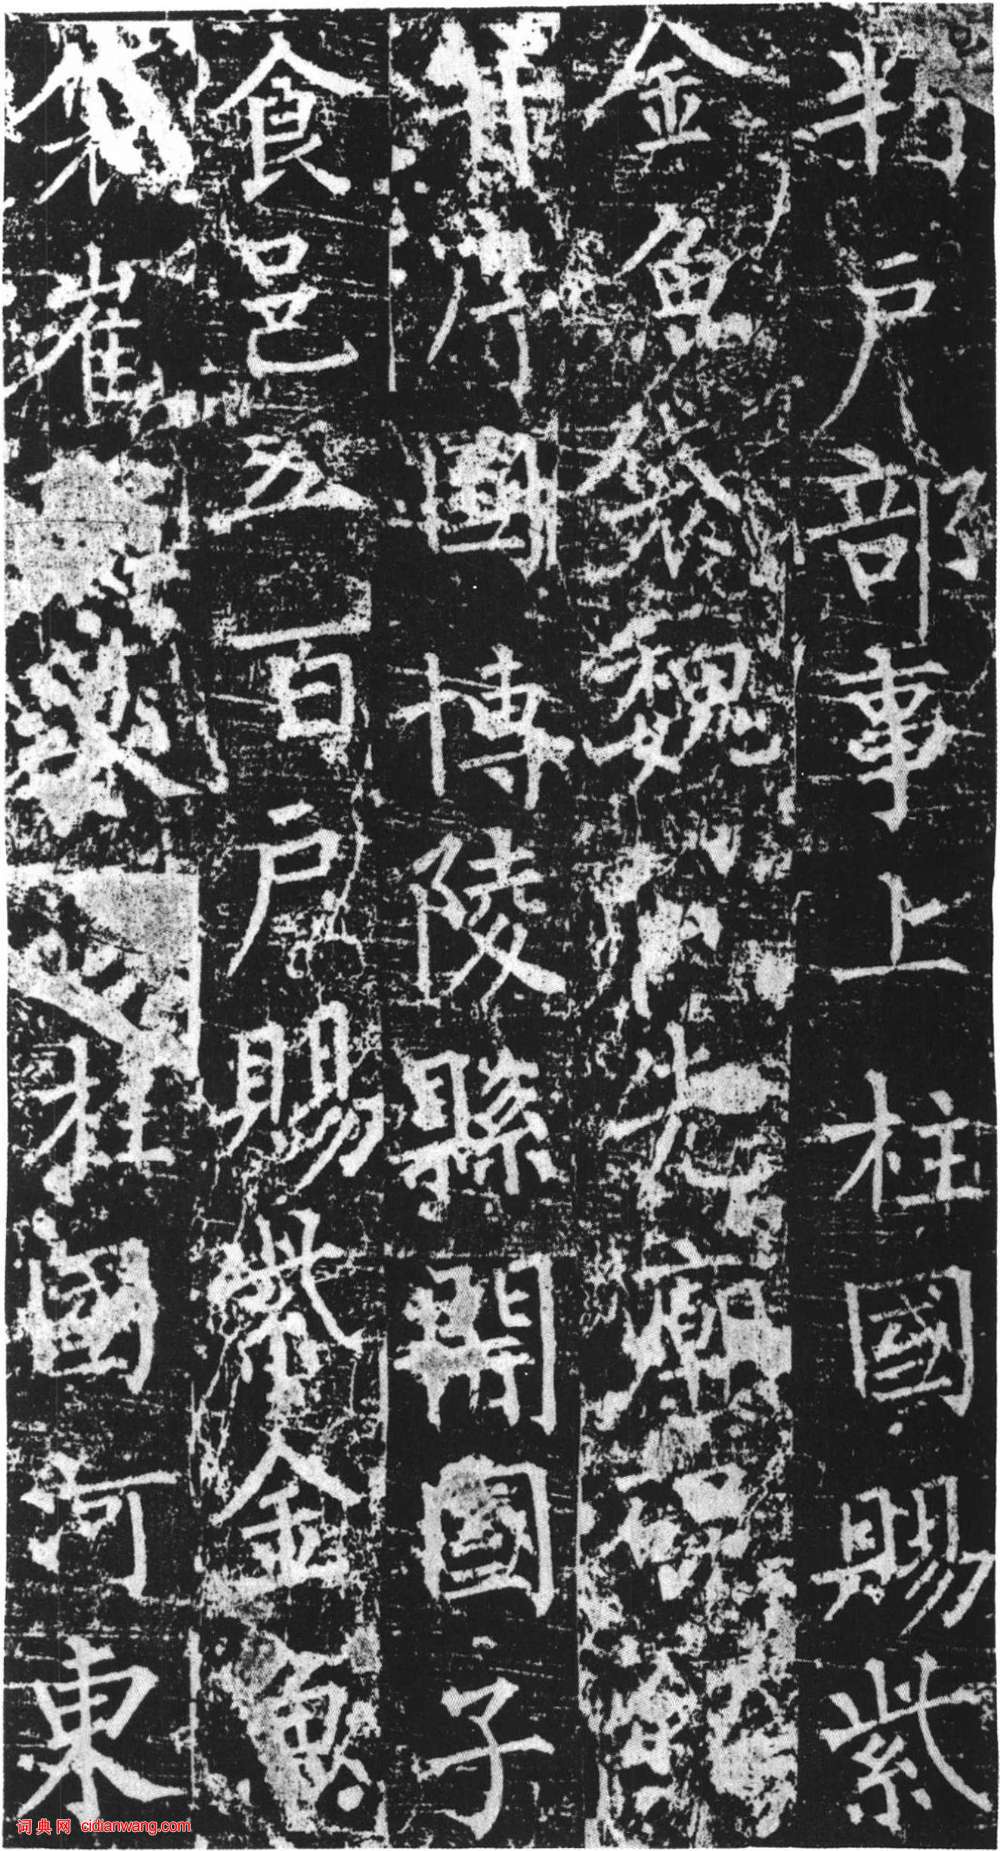 判戶部事上柱國賜紫
金魚袋魏公先廟碑銘
國博陵縣開國子
食邑五百戶賜紫金魚
崔璪柱國河東
词典网 cidianwang.com